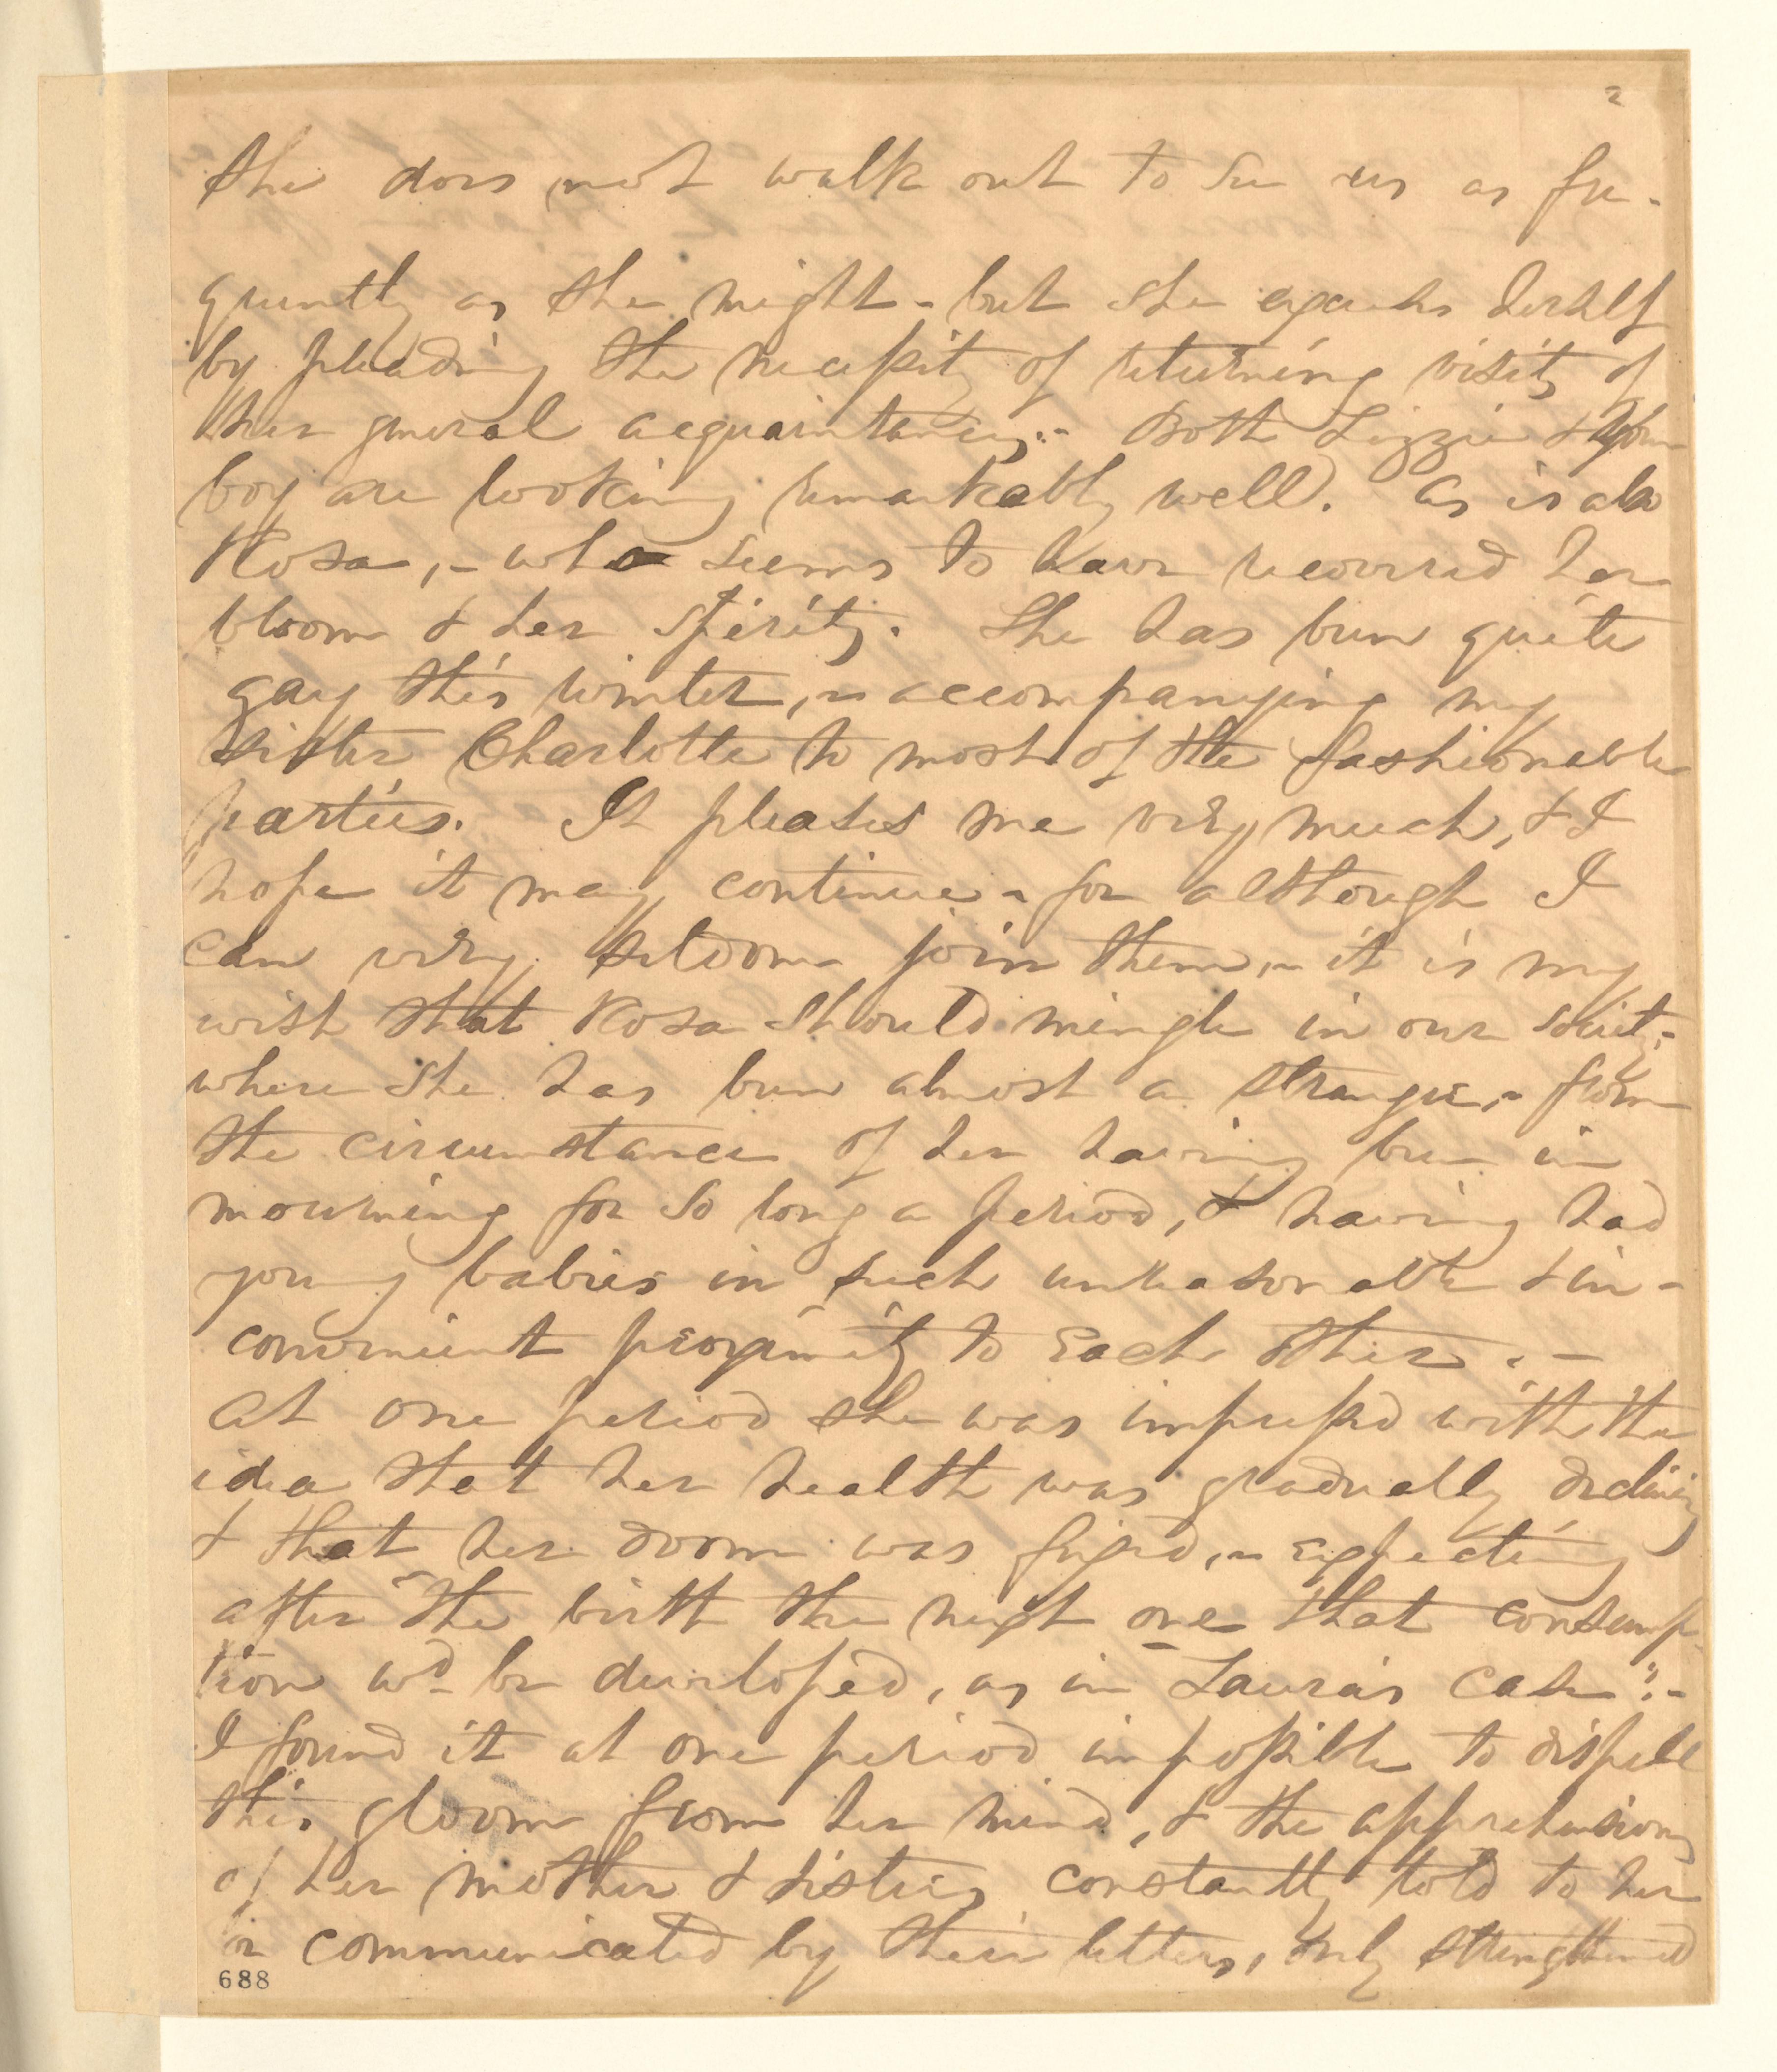 2
She does not walk out to see us as fre-
quently as she might - but she excuses herself
by pleading the necessity of returning visits of
her general acquaintances:- Both Lizzie & your
boy are looking remarkably well. as is also
Rosa, - who seems to have recovered her
bloom & her spirits. She has been quite
gay this winter, - accompanying my
sister Charlotte to most of the fashionable
parties. It pleases me very much, & I
hope it may continue - for although I
can very seldom join them, - it is my
wish that Rosa should mingle in our society -
where she has been almost a stranger, - from
the circumstance of her having been in
mourning for so long a period, & having had
young babies in such unreasonable & in-
convenient proximity to each other. -
At one period she was impressed with the
idea that her health was gradually declining
& that her doom was fixed, - expecting
after the birth the next one that consump-
tion wd be developed, as in Laura's case":-
I found it at one period impossible to dispell
this gloom from her mind, & the apprehensions
of her mother & sisters constantly told to her
or communicated by their letters, only strengthened
688